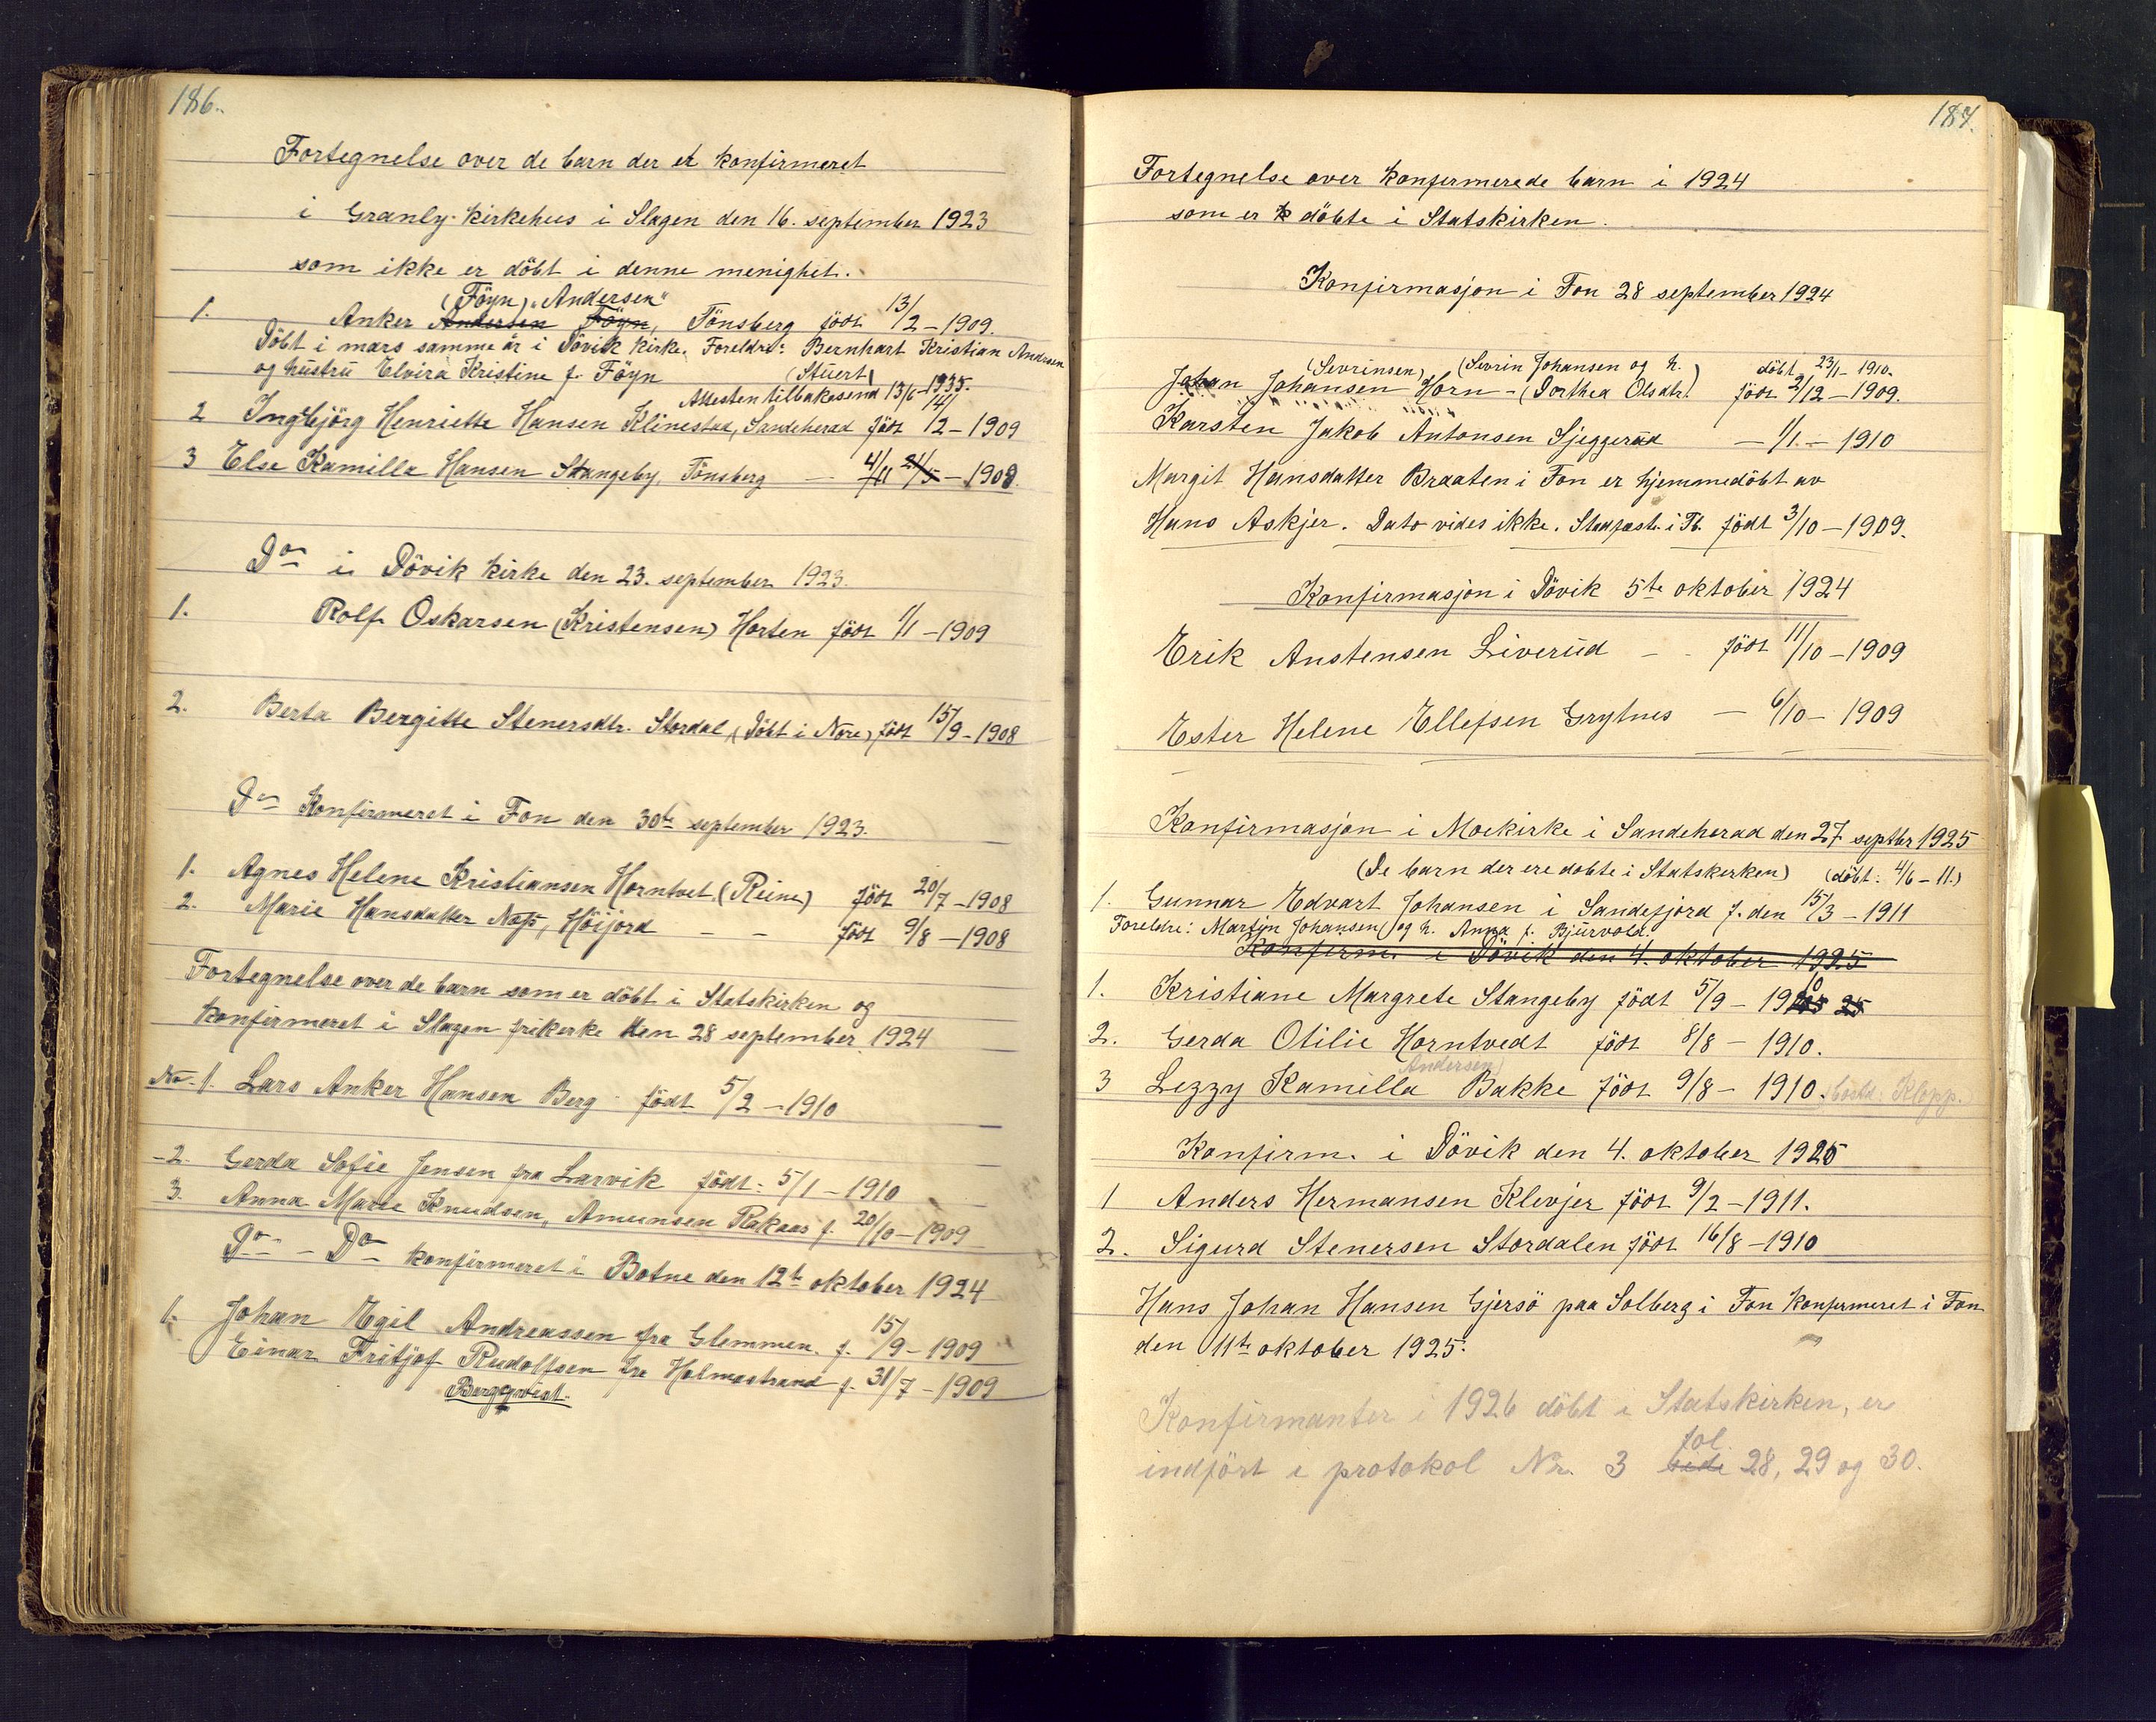 186.
Fortegnelse over de barn der er konfirmeret
i Granly-kirkehus i Slagen den 16. september 1923
som ikke er döbt i denne menighet.
(Föyn) "Andersen"
1. Anker Andersen Föyn, Tönsberg födt 13/2 - 1909.
Döbt i mars samme år i Dövik kirke. Foreldre: Bernhart Kristian Andersen
og hustru Elvira Kristine f. Föyn (Stuert)
Attesten tilbakesend 13/6-1935.
2 Ingebjörg Henriette Hansen Klinestad, Sandeherad födt 14/2 - 1909
3 Else Kamilla Hansen Stangeby, Tönsberg — 4/11 21/5 - 1908.
Do i Dövik kirke den 23. september 1923.
1. Rolf Oskarsen (Kristensen) Horten födt 1/1 - 1909
2. Berta Bergitte Stenersdtr. Stordal, (Döbt i Nore) födt 15/9 - 1908
Do Konfirmeret i Fon den 30te september 1923.
1. Agnes Helene Kristiansen Horntvet (Reine) födt 20/7 - 1908
2. Marie Hansdatter Næss, Höijord - - födt 9/8 - 1908
Fortegnelse over de barn som er döbt i Statskirken og
konfirmeret i Slagen frikerke den 28 september 1924
No. 1. Lars Anker Hansen Berg födt 5/2 - 1910
- 2. Gerda Sofie Jensen fra Larvik födt: 5/1 - 1910
3. Anna Marie Knudsen, Amunsen Rakaas f. 20/10 - 1909
Do - Do konfirmeret i Botne den 12te oktober 1924
1. Johan Egil Andreassen fra Glemmen. f. 15/9 - 1909
Einar Fritjof Rudolfsen fra Holmestrand f. 31/7 - 1909
Bergqvist.
187.
Fortegnelse over konfirmerede barn i 1924
som er döbte i Statskirken.
Konfirmasjon i Fon 28 september 1924
(Sevrinsen) (Sevrin Johansen og h. döbt 23/1 - 1910.
Johan Johansen Horn - (Dorthea Olsdtr.) födt 2/12 - 1909.
Karsten Jakob Antonsen Sjeggerud — 1/1. - 1910
Margit Hansdatter Braaten i Fon er hjemmedöbt av
Hans Askjer. Dato vides ikke. Stadfæst. i Fk. födt 3/10 - 1909.
Konfirmasjon i Dövik 5te oktober 1924
Erik Anstensen Liverud - - födt 11/10 - 1909
Ester Helene Ellefsen Grytnes — 6/10 - 1909
Konfirmasjon i Moekirke i Sandeherad den 27 septbr 1925
(De barn der ere dobte i Statskerken) (döbt: 4/6 - 11.)
1. Gunnar Edvart Johansen i Sandefjord f. den 15/3 - 1911
Foreldre: Martin Johansen og h. Anna f. Bjurvold.
Konfirm. i Dövik den 4. oktober 1925
1. Kristiane Margrete Stangeby födt 5/9 - 1910 25
2. Gerda Otilie Horntvedt födt 8/8 - 1910.
Andersen)
3 Lezzy Kamilla Bakke födt 9/8 - 1910. (bostd: Klopp.
Konfirm. i Dövik den 4. oktober 1925
1 Anders Hermansen Klevjer födt 9/2 - 1911.
2. Sigurd Stenersen Stordalen födt 16/8 - 1910
Hans Johan Hansen Gjersö paa Solberg i Fon Konfirmeret i Fon
den 11te oktober 1925.
Konfirmanter i 1926 döbt i Statskirken, er
fol.
indfört i protokol Nr. 3 side 28, 29 og 30.